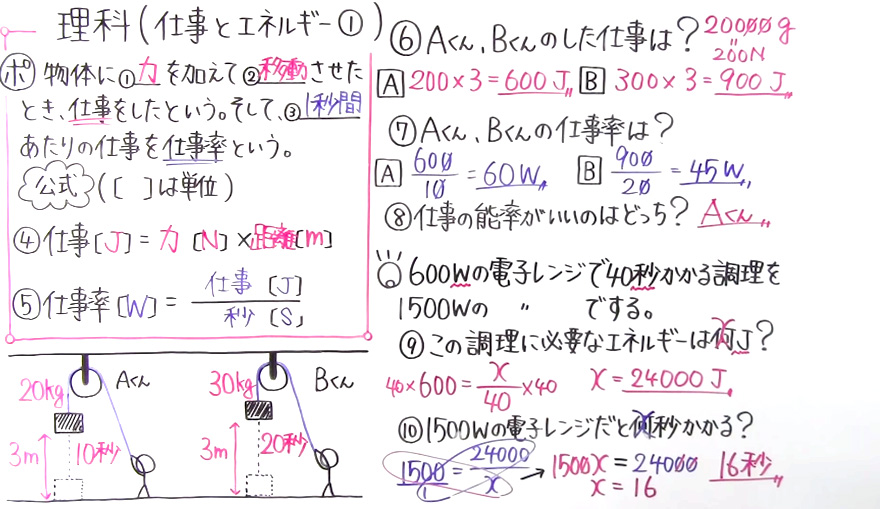 理科(仕事とエネルギー①)
ポ 物体に①力を加えて②移動させた
とき、仕事をしたという。そして、③1秒間
あたりの仕事を仕事率という。
公式([ ]は単位)
④仕事[J]=力[N]×距離[m]
⑤仕事率[W]=仕事[J]/秒[S]
20kg Aくん 30kg Bくん
3m 10秒 3m 20秒
⑥Aくん、Bくんのした仕事は? 20000g
200N
A 200×3=600J B 300×3=900J
⑦Aくん、Bくんの仕事率は?
A 600/10=60W B 900/20=45W
⑧仕事の能率がいいのはどっち? Aくん
600Wの電子レンジで40秒かかる調理を
1500Wの 〃 でする。
⑨この調理に必要なエネルギーは何J? x
40×600=x/40×40 x=24000J
⑩1500Wの電子レンジだと何秒かかる? x
1500/1=24000/x → 1500x=24000 16秒
x=16